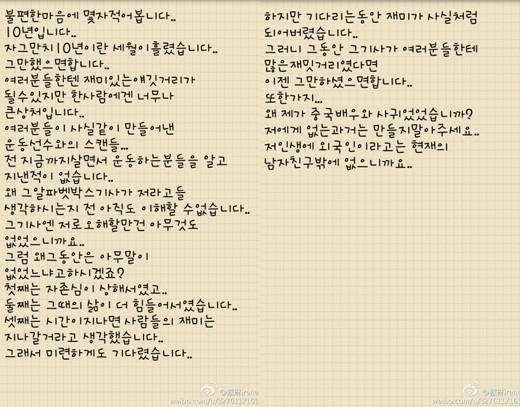 불편한마음에 몇자적어봅니다..
10년입니다..
자그만치10년이란 세월이흘렀습니다..
그만했으면합니다..
여러분들한텐 재미있는얘깃거리가
될수있지만 한사람에겐 너무나
큰상처입니다..
여러분들이 사실같이 만들어낸
운동선수와의 스캔들...
전 지금까지살면서 운동하는분들을 알고
지낸적이 없습니다..
왜 그알파벳박스기사가 저라고들
생각하시는지 전 아직도 이해할 수없습니다..
그기사엔 저로오해할만건 아무것도
없었으니까요..
그럼 왜그동안은 아무말이
없었느냐고하시겠죠?
첫째는 자존심이 상해서였고..
둘째는 그때의 삶이 더 힘들어서였습니다..
셋째는 시간이지나면 사람들의 재미는
지나갈거라고 생각했습니다..
그래서 미련하게도 기다렸습니다..
하지만 기다리는동안 재미가 사실처럼
되어버렸습니다..
그러니 그동안 그기사가 여러분들한테
많은재밋거리였다면
이젠 그만하셨으면합니다..
또한가지...
왜 제가 중국배우와 사귀었었습니까?
저에게 없는과거는 만들지말아주세요..
저인생에 외국인이라고는 현재의
남자친구밖에 없으니까요..
weibo.com/u/3276117161
weibo.com/u/3276117161